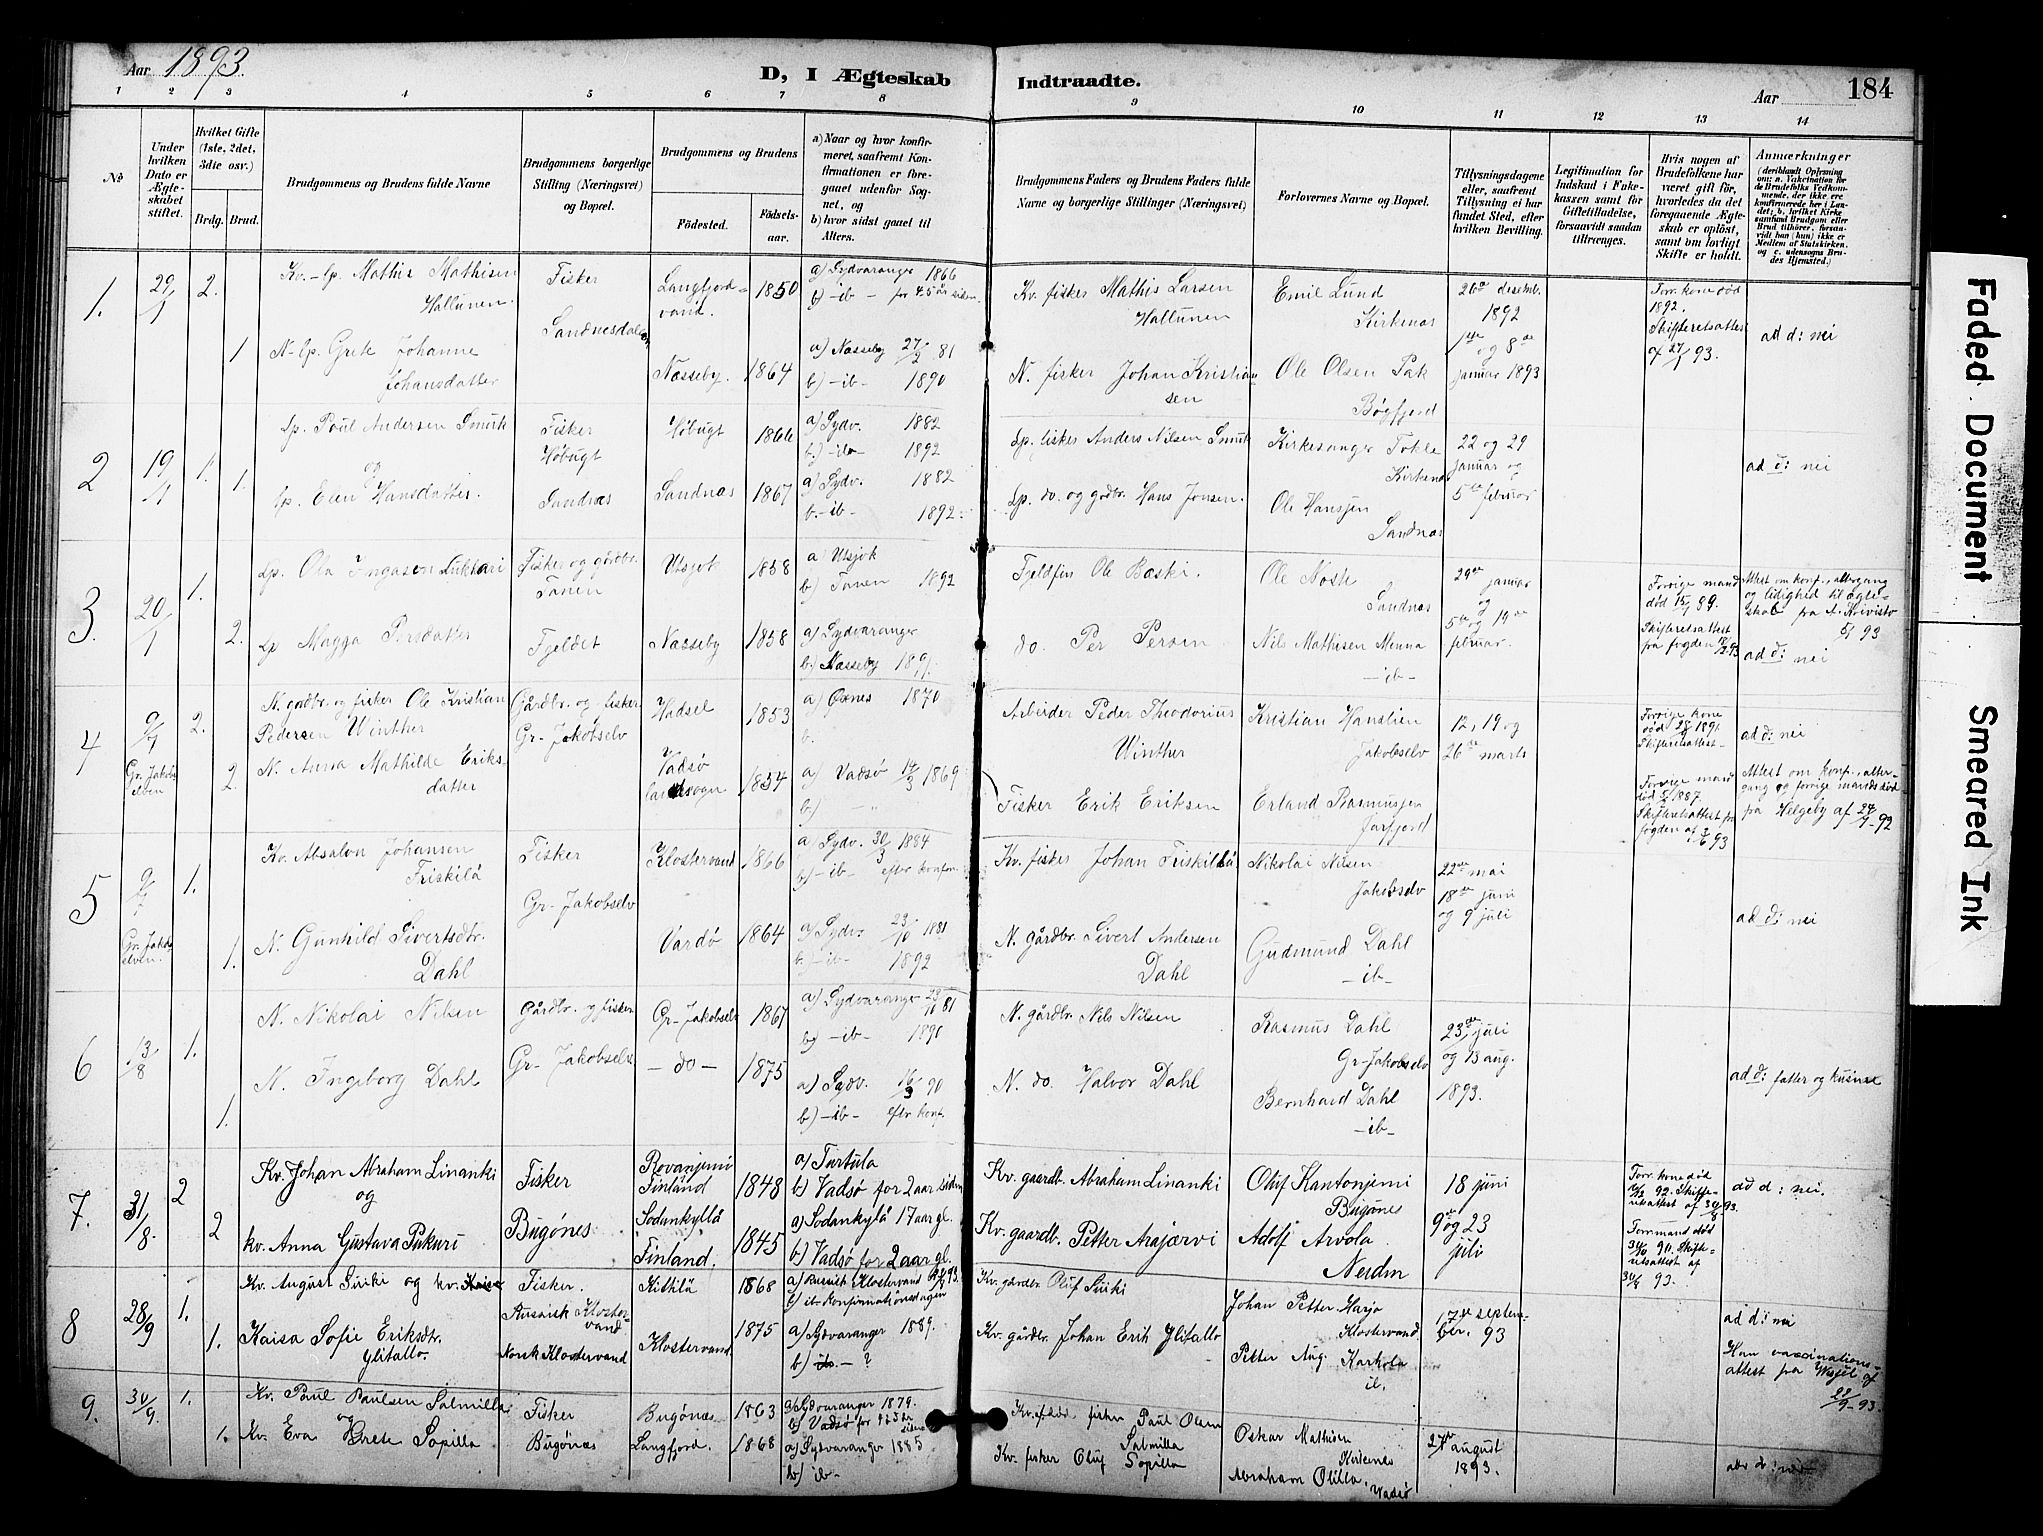 Aar 1893.
D, I Ægteskab
Indtraadte.
Aar
184
1
2
3
4
5
6
7
8
9
10
11
12
13
14
No
Under
hvilken
Dato er
Ægte-
skabet
stiftet.
Hvilket Gifte
(1ste, 2det,
3dte osv.)
Brdg.
Brud.
Brudgommens og Brudens fulde Navne
Brudgommens borgerlige
Stilling (Næringsvei)
og Bopæl.
Brudgommens og Brudens
Fødested.
Fødsels-
aar.
a) Naar og hvor konfir-
meret, saafremt Kon-
firmationen er fore-
gaaet udenfor Sog-
net, og
b) hvor sidst gaaet til
Alters.
Brudgommens Faders og Brudens Faders fulde
Navne og borgerlige Stillinger (Næringsvei)
Forlovernes Navne og Bopæl.
Tillysningsdagene
eller, saafremt
Tillysning ei har
fundet Sted, efter
hvilken Bevilling.
Legitimation for
Indskud i Enke-
kassen samt for
Giftetilladelse,
forsaavidt saadan
tiltrænges.
Hvis nogen af
Brudefolkene har
været gift før,
hvorledes da det
foregaaende Ægte-
skab er opløst,
samt om lovligt
Skifte er holdt.
Anmærkninger
(deriblandt Oplysning
om: a. Vakcination for
de Brudefolks Vedkom-
mende, der ikke ere
konfirmerede her i Lan-
det; b. hvilket Kirke-
samfund Brudgom eller
Brud tilhører, forsaa-
vidt han (hun) ikke er
Medlem af Statskirken,
og c. udensogns Bru-
des Hjemsted.)
1.
29/1
2.
1
Kv.-lp. Mathis Mathisen
Hallunen.
N-lp. Grete Johanne
Johansdatter
Fisker
Sandnesdalen
Langfjord-
vand.
Næsseby.
1850
1864
a) Sydvaranger 1866
b) -ib- for 4.5 år siden.
a) Næsseby 27/2 81
b) -ib- 1890
Kv. fisker Mathis Larsen
Hallunen
N. fisker Johan Kristian-
sen
Emil Lund
Kirkenæs
Ole Olsen Pak
Bøgfjord
26de desemb.
1892
1ste og 8de
januar 1893
Forr. kone død
1892.
Skifteretsattest
af 27/1 93.
ad d: nei
2
19/1
1.
1.
Lp. Poul Andersen Smuk
og
Lp. Elen Hansdatter.
Fisker
Høbugt
Sandnæs
Høbugt
Sandnæs
1866
1867
a) Sydv. 1882
b) -ib- 1892
a) Sydv. 1882
b. -ib- 1892.
Lp. fisker Anders Nilsen Smuk
Lp. do. og gdbr. Hans Jonsen.
Kirkesanger Tokle
Kirkenæs
Ole Hansen
Sandnæs
22 og 29
januar og
5te februar
ad d: nei
3.
20/1
1.
2.
Lp. Ola Ingasen Lukkari
Lp Magga Persdatter
Fisker og gårdbr.
Tanen
Fjeldet
Utsjok
Næsseby
1858
1858
a Utsjok
b) Tanen 1892
a) Sydvaranger
b) Næsseby 1891.
Fjeldfin Ole Baski.
do. Per Persen
Ole Noste
Sandnæs
Nils Mathisen Menna
-ib-
29de januar
og
5te og 19de
februar.
Forrige mand
død 15/1 89.
Skifteretsattest
fra fogden 18/2 93
Attest om konf., altergang
og lidighed til Ægte-
skab fra A. Koivisto
5/1 93
ad d: nei
4
9/7
Gr. Jakobs
elven
2.
2.
N. grdbr. og fisker Ole Kristian
Pedersen Winther
N. Anna Mathilde Eriks-
datter
Gårdbr. og fisker
Gr. Jakobselv
Hadsel
Vadsø
landsogn
1853
1854
a) Øxnes 1870
b.
a) Vadsø 14/3 1869
b) - "
Arbeider Peder Theodorius
Winther
Fisker Erik Eriksen
Kristian Hanslien
Jakobselv
Erland Rasmussen
Jarfjord
12, 19 og
26de marts
Forrige kone
død 28/9 1891.
Skifteretsattest-
Forrige mand
død 5/5 1887.
Skifteretsattest fra
fogden af 3/6 93
ad d: nei
Attest om konf., alter-
gang og forrige mands død
fra Helgeby af 24/9-92
5
9/7
Gr. Jakobs
elven.
1.
1.
Kv. Absalon Johansen
Friskilä
N. Gunhild Sivertsdtr.
Dahl
Fisker
Gr-Jakobselv
Klostervand
Vardø
1866
1864
a) Sydv. 30/3 1884
b) -ib- efter konfir.
a) Sydv. 23/10 1881
b. -ib- 1892
Kv. fisker Johan Friskilä
N. gårdbr. Sivert Andersen
Dahl
Nikolai Nilsen
Jakobselv
Gudmund Dahl
-ib-
22de mai
18de juni
og 9 juli
ad d: nei
6
13/8
1.
1.
N. Nikolai Nilsen
N. Ingeborg Dahl
Gårdbr. og fisker
Gr-Jakobselv
Gr-Jakobselv
-do-
1867
1875
a) Sydvaranger 23/10 81
b) -ib- 1890
a) Sydv. 16/3 90
b) -ib- efter konf.
N. gårdbr. Nils Nilsen
N. do. Halvor Dahl
Rasmus Dahl
Gr-Jakobselv
Bernhard Dahl
-ib-
23de juli
og 13 aug.
1893.
ad d: fætter og kusine
7.
31/8.
2
2
Kv. Johan Abraham Linanki
og
kv. Anna Gustava Pukuri
Fisker
Bugönes
Rovanjemi
Finland
Sodankylä
Finland.
1848
1845
a) Turtula
b) Vadsø for 2 aar siden
a) Sodankylä 17 aar gl.
b) Vadsø for 2 aar gl.
Kv. gaardb. Abraham Linanki
Kv. gaardb. Petter Arajærvi
Oluf Kantonjemi
Bugönes
Adolf Arvola
Neiden
18 juni
9de og 23
juli
Forr. kone død
92. Skifte-
retsattest af 93.
Forr mand død
90. Skifte-
retsattest af
93.
ad d: nei.
8
28/9
1.
1.
Kv. August Suiki og kv. Kaisa
Kaisa Sofie Eriksdtr.
Ylitallo.
Fisker.
Russisk Kloster-
vand
Norsk Klostervand
Kittilä
Klostervand
1868
1875
a) Russisk Klostervand 93.
b) ib Konfirmationsdagen
a) Sydvaranger 1889.
b) ib. - ?
Kv. gårdbr Oluf Suiki
Kv. gårdbr. Johan Erik Ylitallo
Johan Petter Harjo
Klostervand.
Petter Aug. Karkola
ib.
17de septem-
ber. 93
ad d: nei
Han vaccinations-
attest fra af
28/9-93.
9.
30/9.
1.
1.
Kv. Paul Paulsen Salmilla
og
Kv. Eva Grete Sopilla
Fisker
Bugönæs
Bugönæs
Langfjord.
1863
1868
a) Sydvaranger 1879.
b) Vadsø for
siden
a) Sydvaranger 1885
b) ib-
Kv. fisker Paul Olsen
Salmilla
Kv. fisker Oluf Sopilla
Oskar Mathisen
Kirkenes
Abraham Olilla,
Vadsø
27de august
1893.
ad d: nei
Faded Document
Smeared Ink